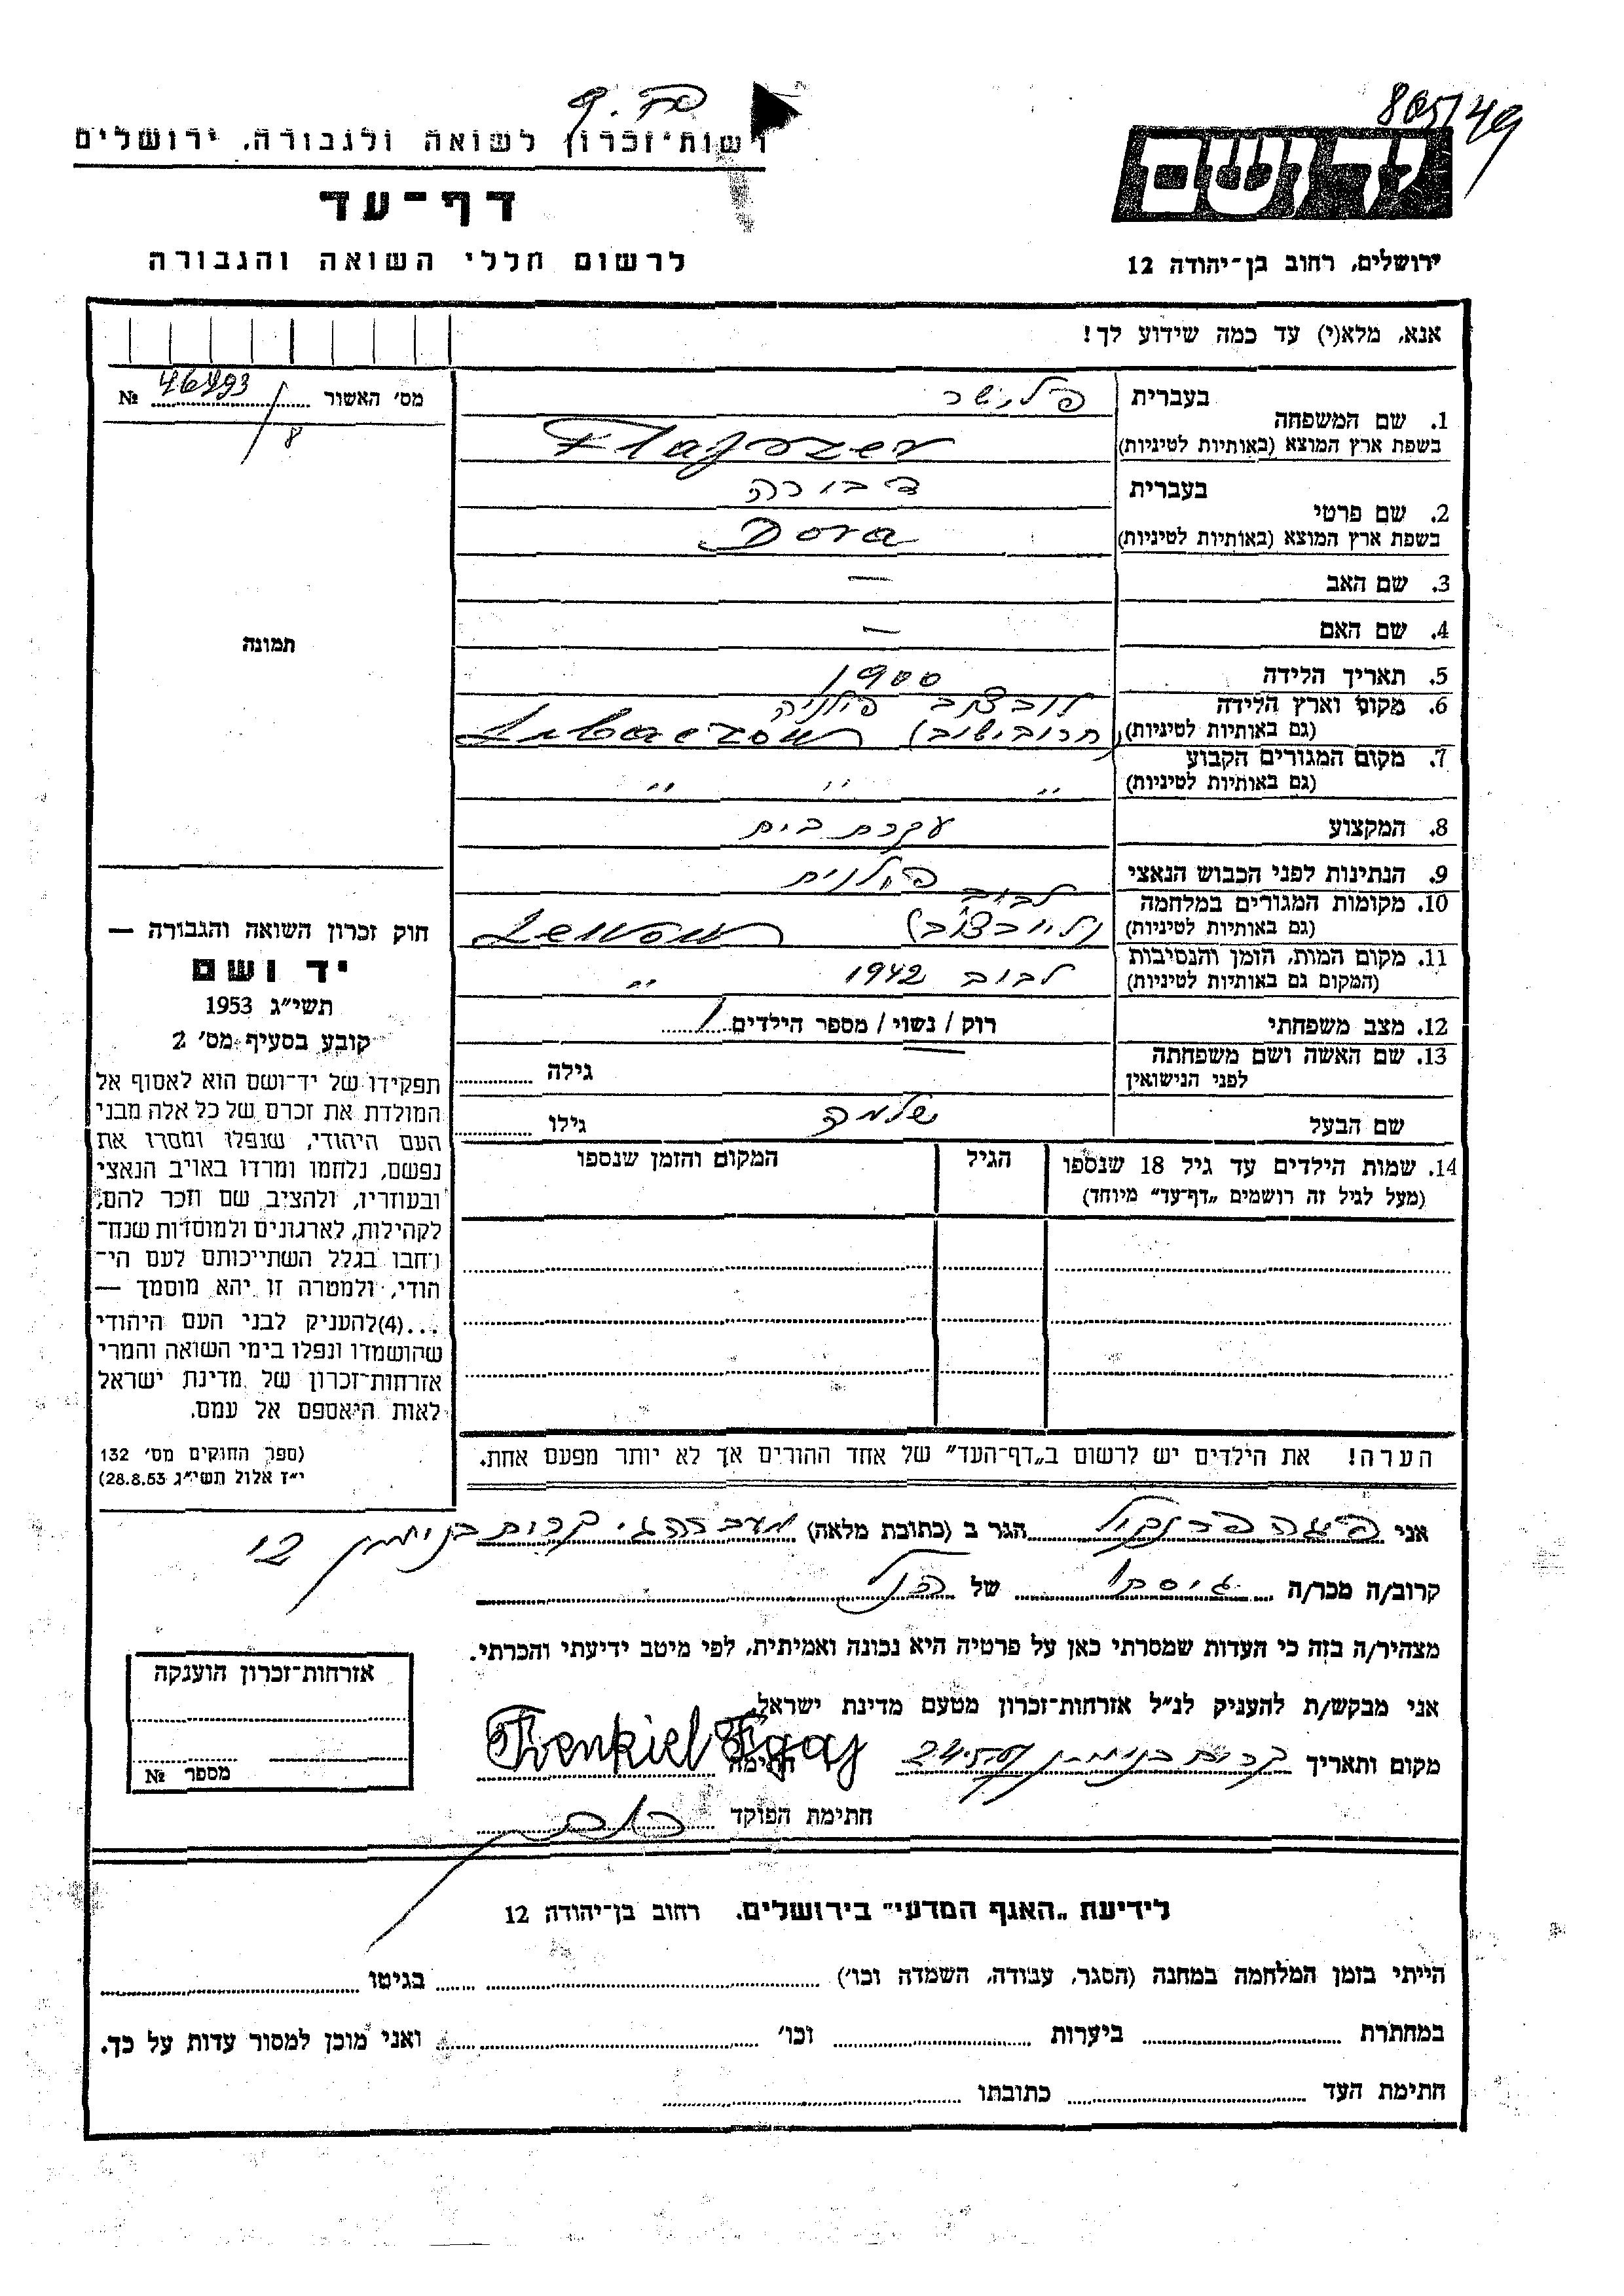 805/49
רשות־זכרון לשואה ולגבורה, ירושלים
יד ושם
דף־עד
לרשום חללי השואה והגבורה
ירושלים, רחוב בן־יהודה 12
אנא, מלא(י) עד כמה שידוע לך!
מס' האשור № 46493
8
תמונה
1. שם המשפחה
בעברית
פליישר
בשפת ארץ המוצא (באותיות לטיניות) Flajszer
2. שם פרטי
בעברית דבורה
בשפת ארץ המוצא (באותיות לטיניות) Dora
3. שם האב —
4. שם האם —
5. תאריך הלידה 1900
6. מקום וארץ הלידה
לובצוב פולניה
(גם באותיות לטיניות) Lubaczow
7. מקום המגורים הקבוע
(גם באותיות לטיניות) " " "
8. המקצוע עקרת בית
9. הנתינות לפני הכבוש הנאצי פולנית
10. מקומות המגורים במלחמה לבוב
(גם באותיות לטיניות) (לובצוב)
11. מקום המות, הזמן והנסיבות
(המקום גם באותיות לטיניות) לבוב 1942 "
12. מצב משפחתי רוק / נשוי / מספר הילדים 1
13. שם האשה ושם משפחתה
לפני הנישואין גילה
שם הבעל שלמה גילו
14. שמות הילדים עד גיל 18 שנספו
(מעל לגיל זה רושמים „דף־עד" מיוחד)
הגיל
המקום והזמן שנספו
הערה! את הילדים יש לרשום ב„דף־העד" של אחד ההורים אך לא יותר מפעם אחת.
חוק זכרון השואה והגבורה —
יד ושם
תשי"ג 1953
קובע בסעיף מס' 2
תפקידו של יד־ושם הוא לאסוף אל
המולדת את זכרם של כל אלה מבני
העם היהודי, שנפלו ומסרו את
נפשם, נלחמו ומרדו באויב הנאצי
ובעוזריו, ולהציב שם וזכר להם,
לקהילות, לארגונים ולמוסדות שנח־
רחבו בגלל השתייכותם לעם הי־
הודי, ולמטרה זו יהא מוסמך —
...(4)להעניק לבני העם היהודי
שהושמדו ונפלו בימי השואה והמרי
אזרחות־זכרון של מדינת ישראל
לאות היאספם אל עמם.
(ספר החוקים מס' 132
י"ז אלול תשי"ג 28.8.53)
אני פיגה פרנקיל הגר ב (כתובת מלאה) מעברה ג' קרית בנימין 12
קרוב/ה מכר/ה גיסתו של הנ"ל
מצהיר/ה בזה כי העדות שמסרתי כאן על פרטיה היא נכונה ואמיתית, לפי מיטב ידיעתי והכרתי.
אני מבקש/ת להעניק לנ"ל אזרחות־זכרון מטעם מדינת ישראל.
מקום ותאריך קרית בנימין חתימה Frenkiel Fgaj
חתימת הפוקד
אזרחות־זכרון הוענקה
מספר №
לידיעת „האגף המדעי" בירושלים, רחוב בן־יהודה 12
הייתי בזמן המלחמה במחנה (הסגר, עבודה, השמדה וכו') בגיטו
במחתרת ביערות וכו' ואני מוכן למסור עדות על כך.
חתימת העד כתובתו